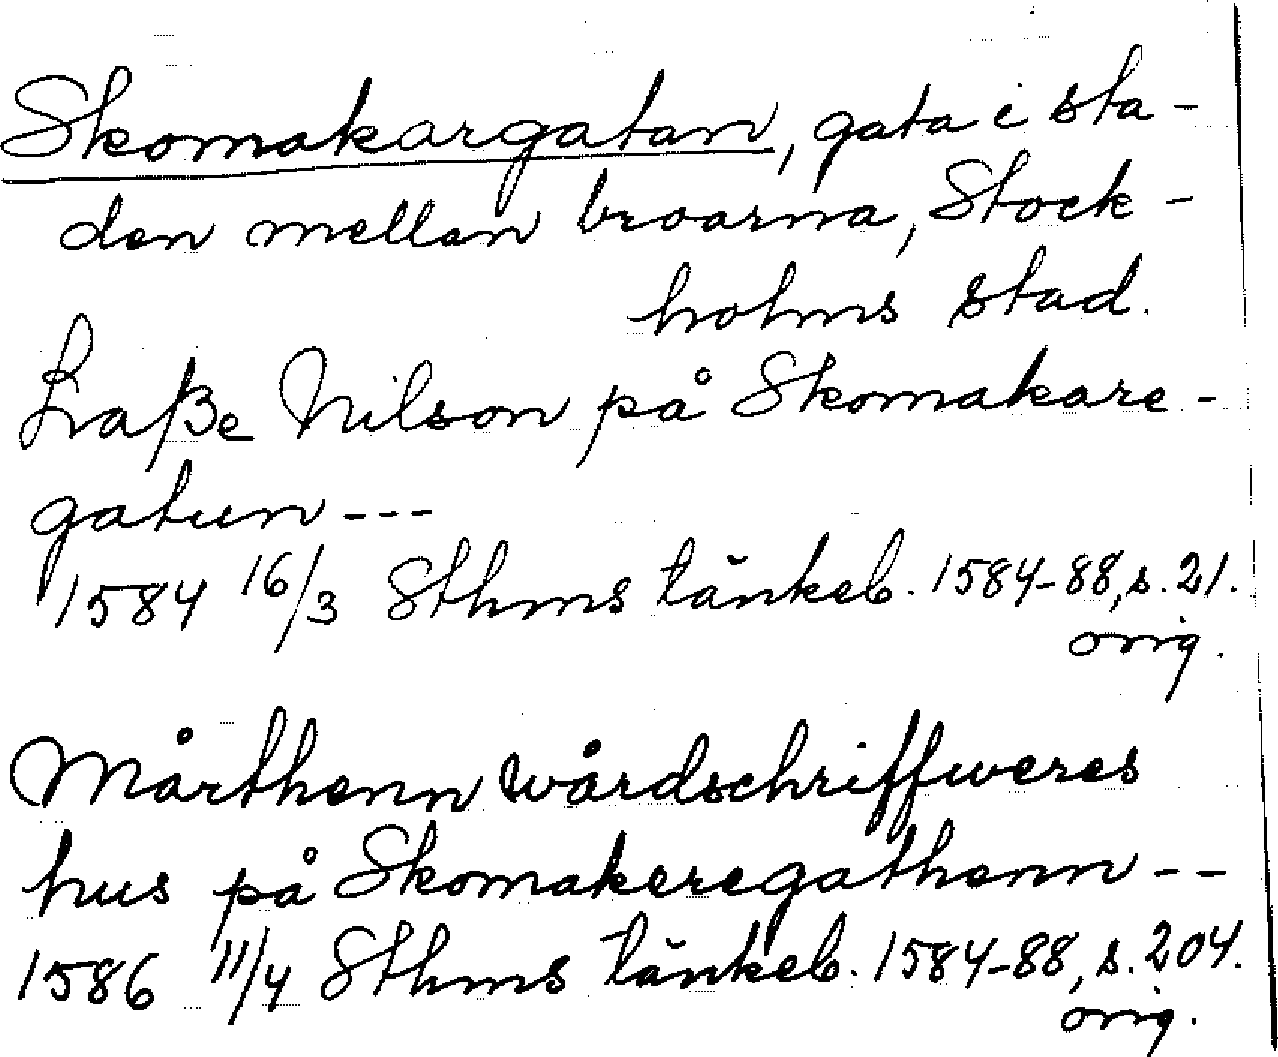 Skomakargatan, gata i sta-
den mellan broarna, Stock-
holms stad.
Laße Nilson på Skomakare-
gatun ---
1584 16/3 Sthms tänkeb. 1584-88, s. 21.
orig.
Mårthenn wårdschriffweres
hus på Skomakeregathenn --
1586 11/4 Sthms tänkeb. 1584-88, s. 204.
orig.